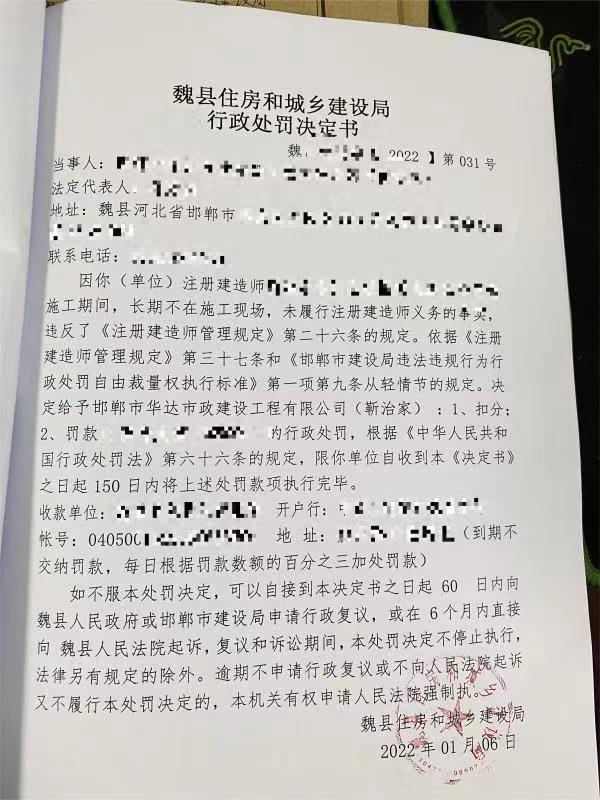 魏县住房和城乡建设局
行政处罚决定书
魏 2022 】第 031 号
当事人：
法定代表人
地址：魏县河北省邯郸市
联系电话：
因你（单位）注册建造师
施工期间，长期不在施工现场，未履行注册建造师义务的事实，
违反了《注册建造师管理规定》第二十六条的规定。依据《注册
建造师管理规定》第三十七条和《邯郸市建设局违法违规行为行
政处罚自由裁量权执行标准》第一项第九条从轻情节的规定。决
定给予邯郸市华达市政建设工程有限公司（靳治家）：1、扣分；
2、罚款 的行政处罚，根据《中华人民共和
国行政处罚法》第六十六条的规定，限你单位自收到本《决定书》
之日起 150 日内将上述处罚款项执行完毕。
收款单位： 开户行：
帐号：040500 地 址： （到期不
交纳罚款，每日根据罚款数额的百分之三加处罚款）
如不服本处罚决定，可以自接到本决定书之日起 60 日内向
魏县人民政府或邯郸市建设局申请行政复议，或在 6 个月内直接
向 魏县人民法院起诉，复议和诉讼期间，本处罚决定不停止执行，
法律另有规定的除外。逾期不申请行政复议或不向人民法院起诉
又不履行本处罚决定的，本机关有权申请人民法院强制执。
魏县住房和城乡建设局
2022 年 01 月 06 日